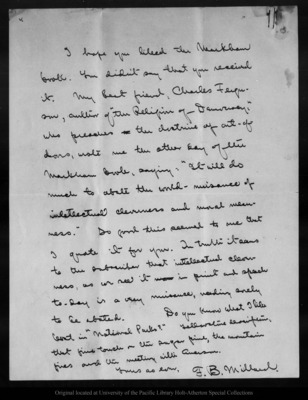 I hope you liked the Markham
book. You didn't say that you received
it. My best friend, Charles Fergu-
son, author of "The Religion of Democracy,"
who preaches the doctrine of art-of-
doors, wrote me the other day of the
Markham book, saying: "It will do
much to abate the world-nuisance of
intellectual cleverness and moral mean-
ness." So good this seemed to me that
I quote it for you. In truth it seems
to the subscriber that intellectual clever-
ness, as we see it in print and speech
to-day is a very nuisance, needing sorely
to be abated. Do you know what I like
best in "National Parks"? Yellowstone description,
that fine touch on the sugar pine, the mountain
fires and the meeting with Emerson.
Yours as ever, F. B. Millard.
Original located at University of the Pacific Library Holt-Atherton Special Collections